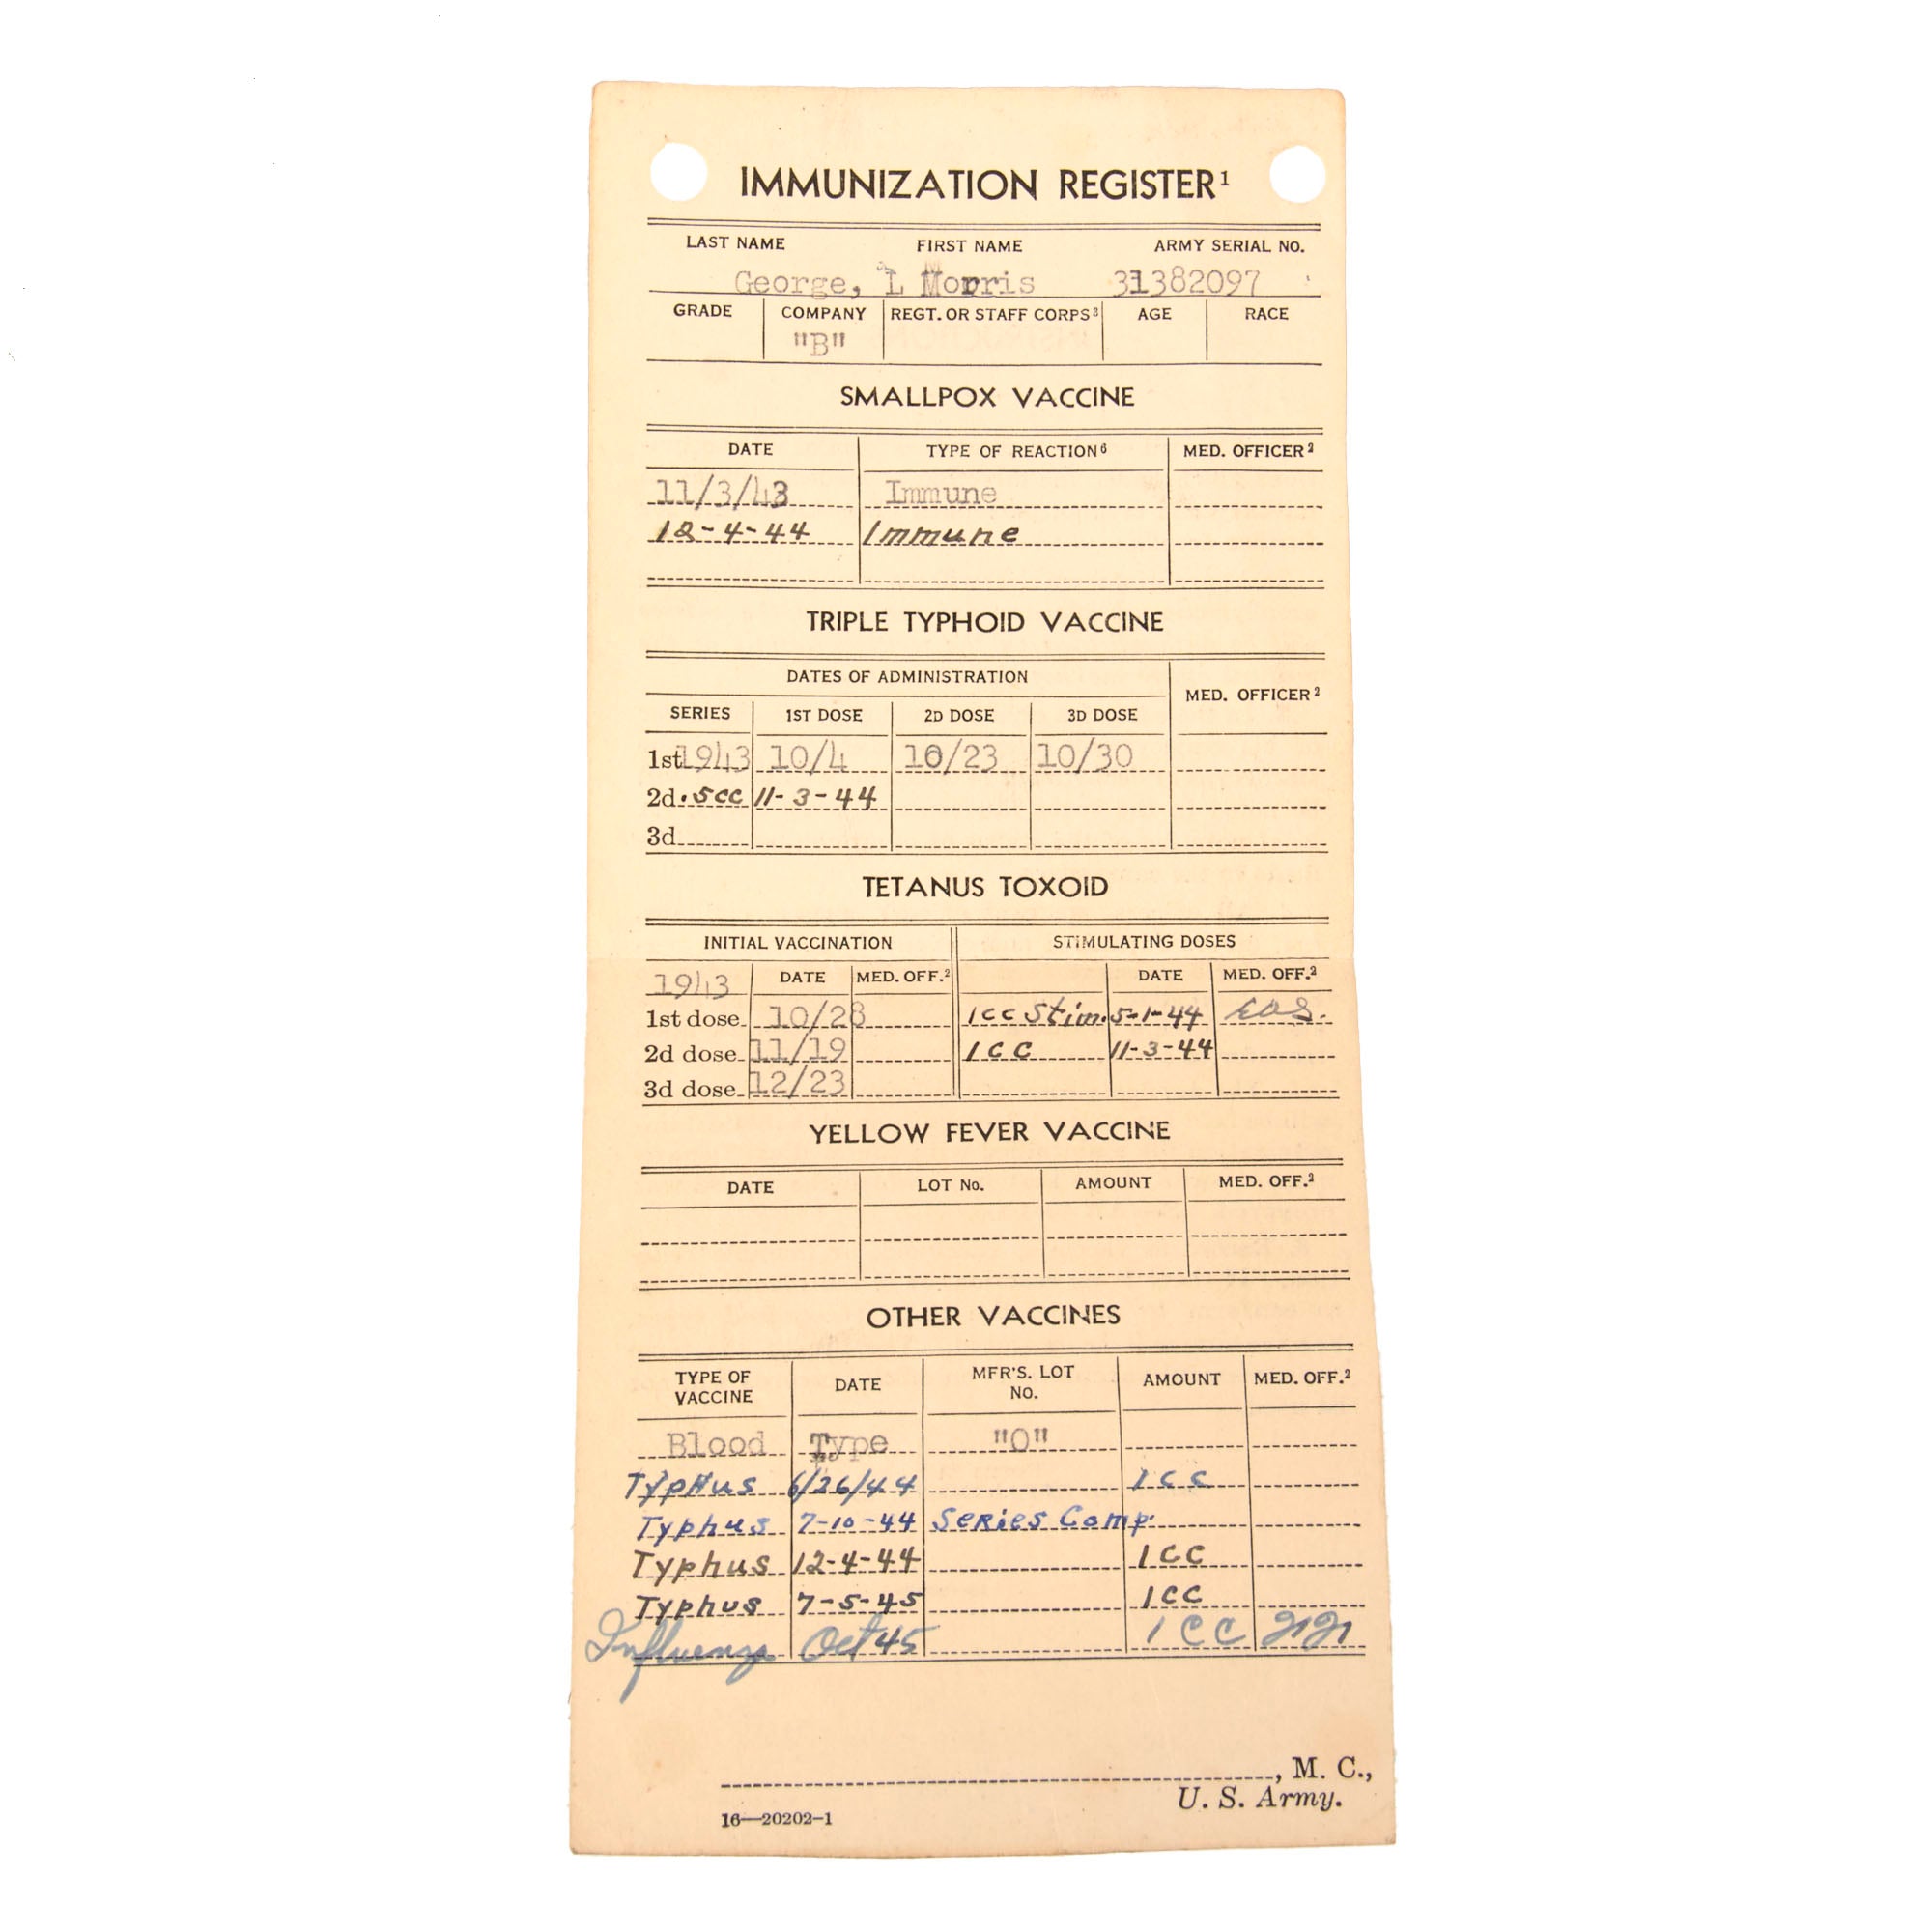 IMMUNIZATION REGISTER¹
LAST NAME FIRST NAME ARMY SERIAL NO.
George, L Morris 31382097
GRADE COMPANY REGT. OR STAFF CORPS³ AGE RACE
"B"
SMALLPOX VACCINE
DATE TYPE OF REACTION⁶ MED. OFFICER²
11/3/43 Immune
12-4-44 Immune
TRIPLE TYPHOID VACCINE
DATES OF ADMINISTRATION MED. OFFICER²
SERIES 1ST DOSE 2D DOSE 3D DOSE
1st 1943 10/4 10/23 10/30
2d .5cc 11-3-44
3d
TETANUS TOXOID
INITIAL VACCINATION STIMULATING DOSES
1943 DATE MED. OFF.² DATE MED. OFF.²
1st dose 10/28 1cc Stim. 5-1-44
2d dose 11/19 1CC 11-3-44
3d dose 12/23
YELLOW FEVER VACCINE
DATE LOT No. AMOUNT MED. OFF.²
OTHER VACCINES
TYPE OF VACCINE DATE MFR'S. LOT NO. AMOUNT MED. OFF.²
Blood Type "O"
TypHus 6/26/44 1cc
Typhus 7-10-44 Series Comp.
Typhus 12-4-44 1CC
Typhus 7-5-45 1CC
Influenza Oct 45 1CC
, M. C.,
U. S. Army.
16—20202-1